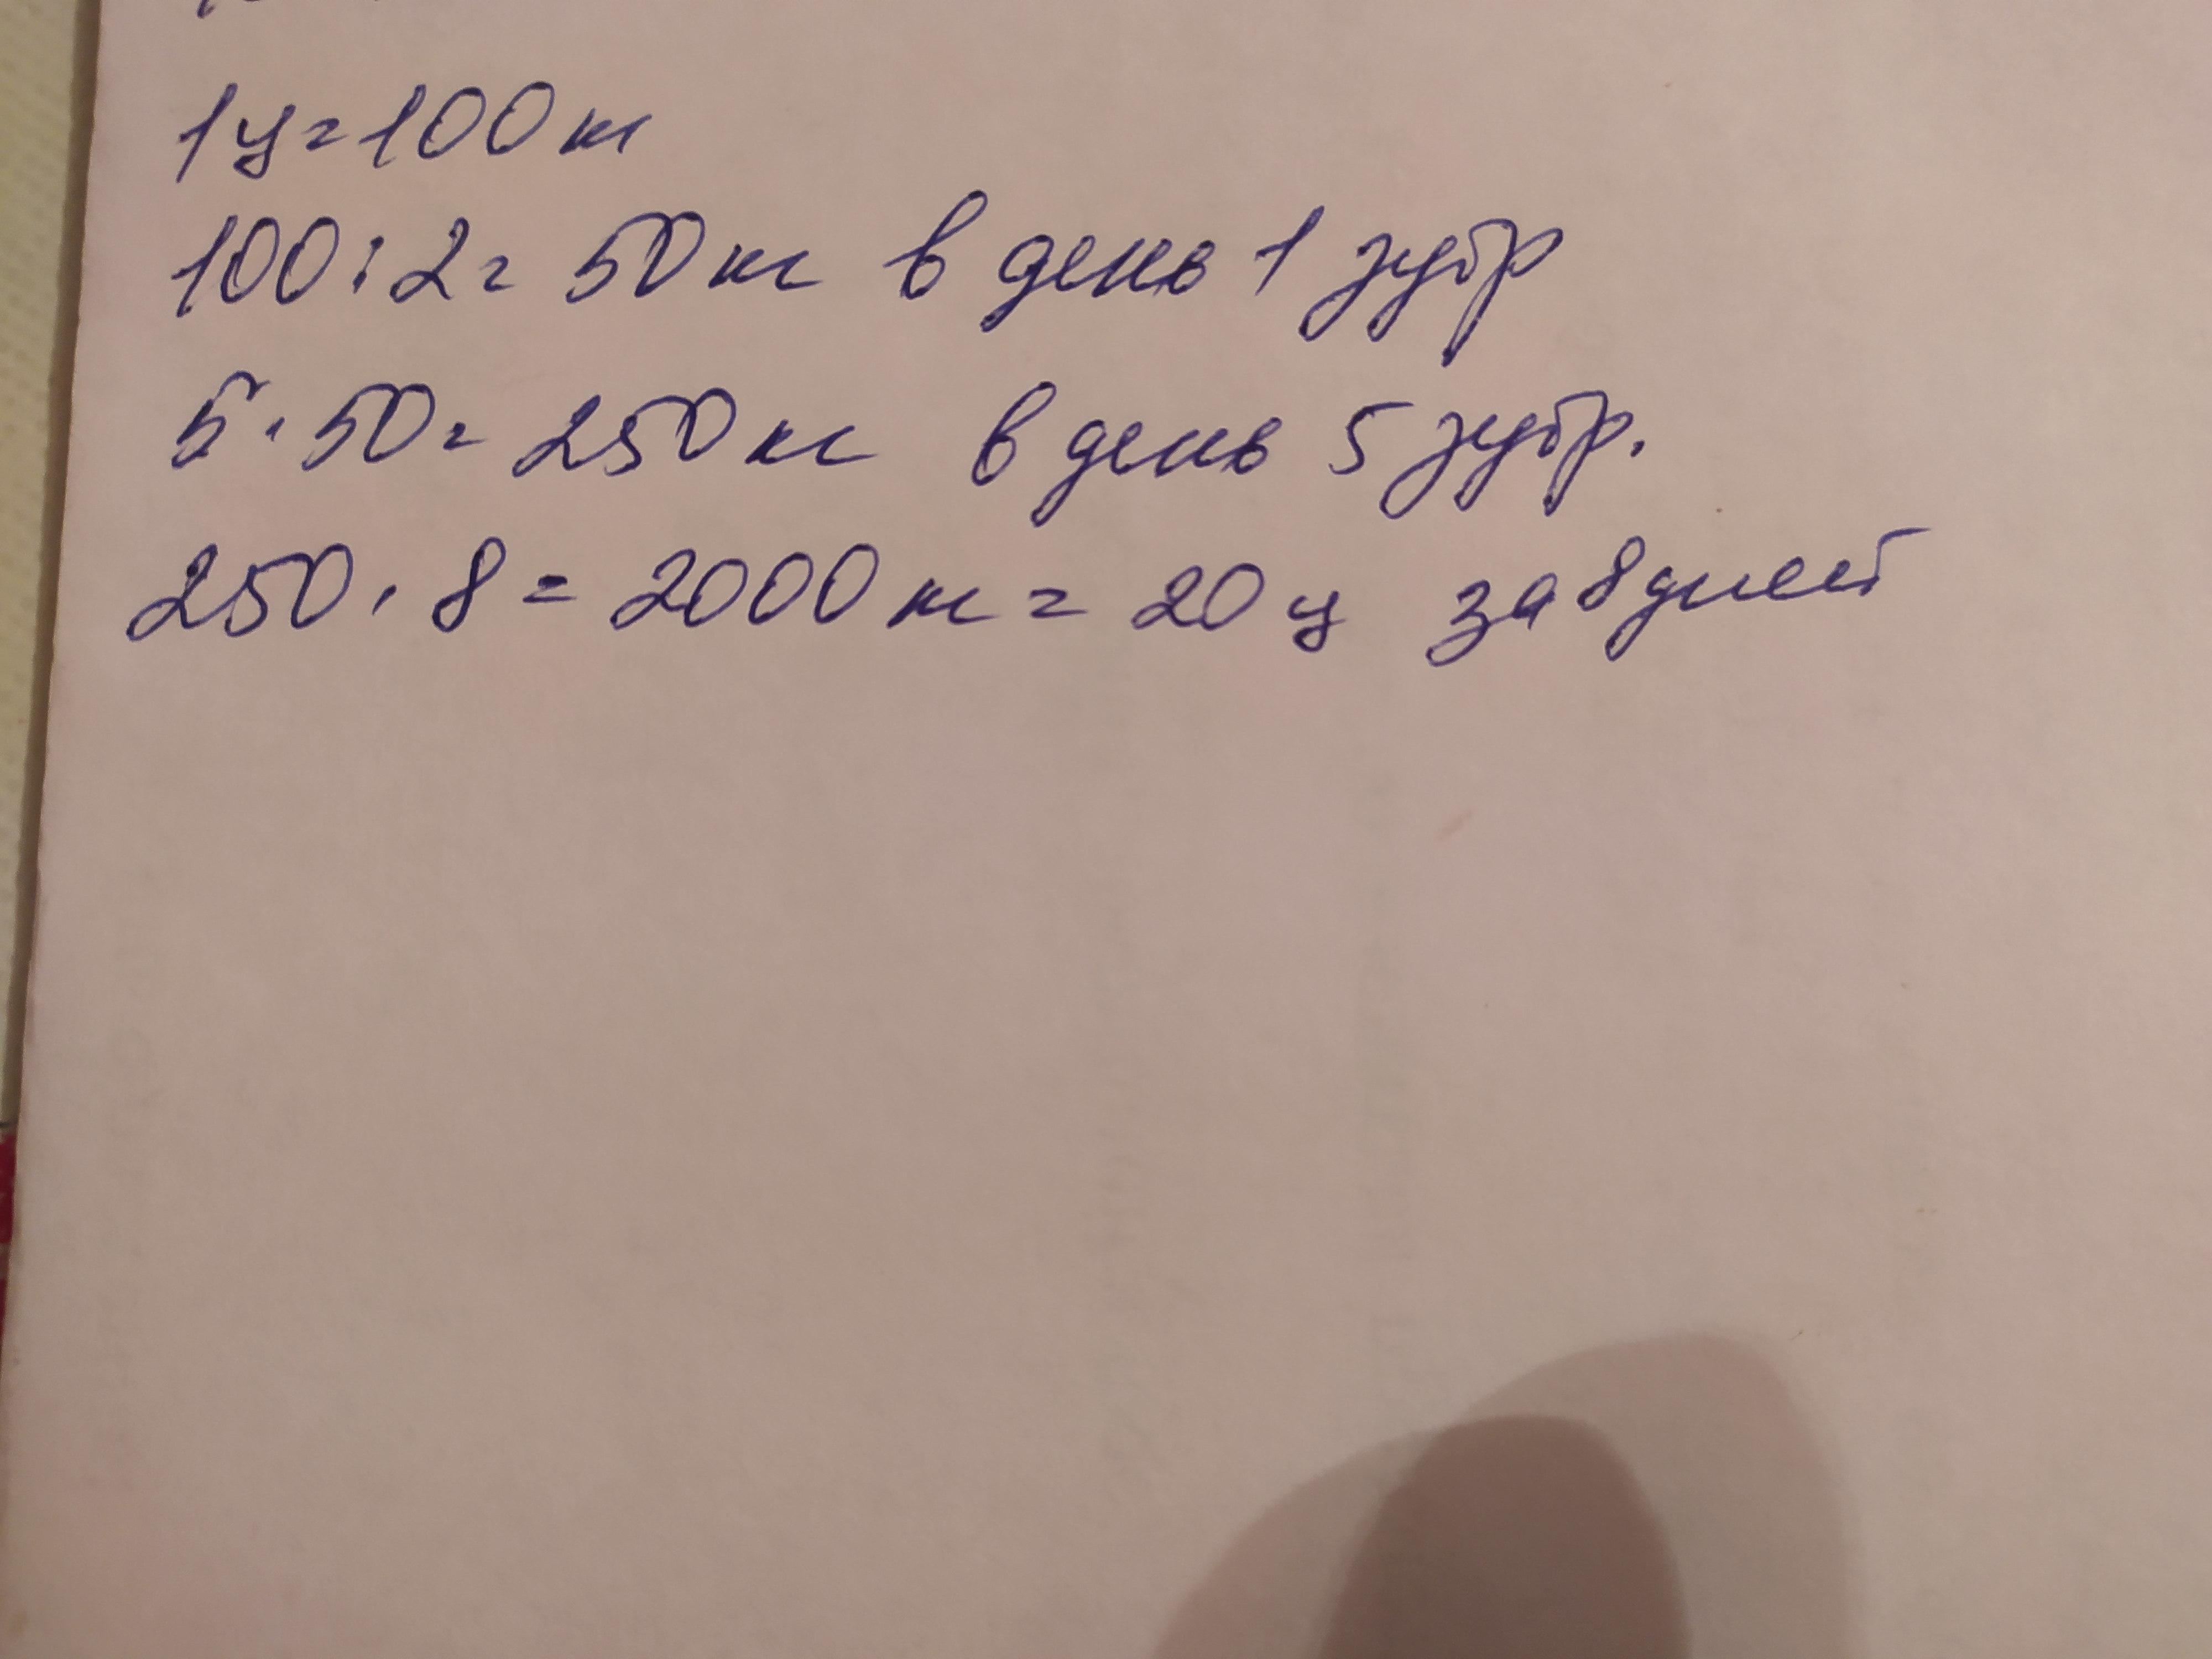 1 ц = 100 кг
100 : 2 = 50 кг в день 1 зубр
5 · 50 = 250 кг в день 5 зубр.
250 · 8 = 2000 кг = 20 ц за 8 дней